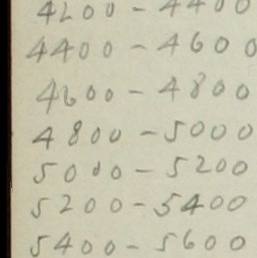 4200 - 4400
4400 - 4600
4600 - 4800
4800 - 5000
5000 - 5200
5200 - 5400
5400 - 5600